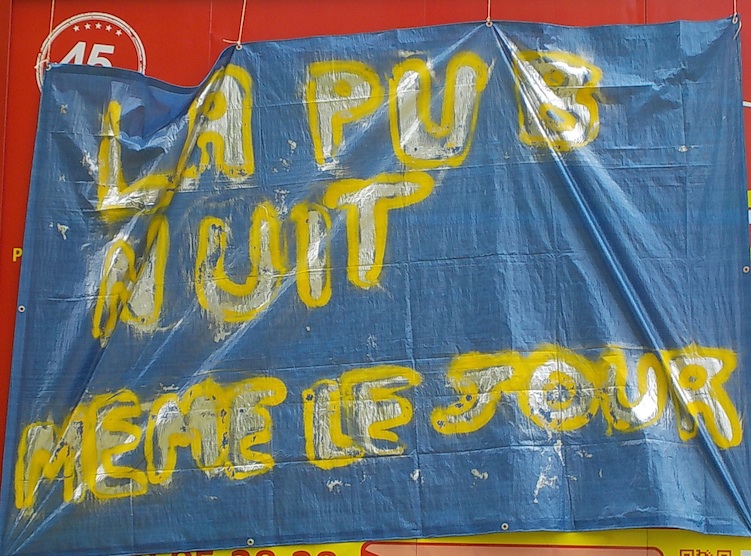 45
LA PUB
NUIT
MEME LE JOUR